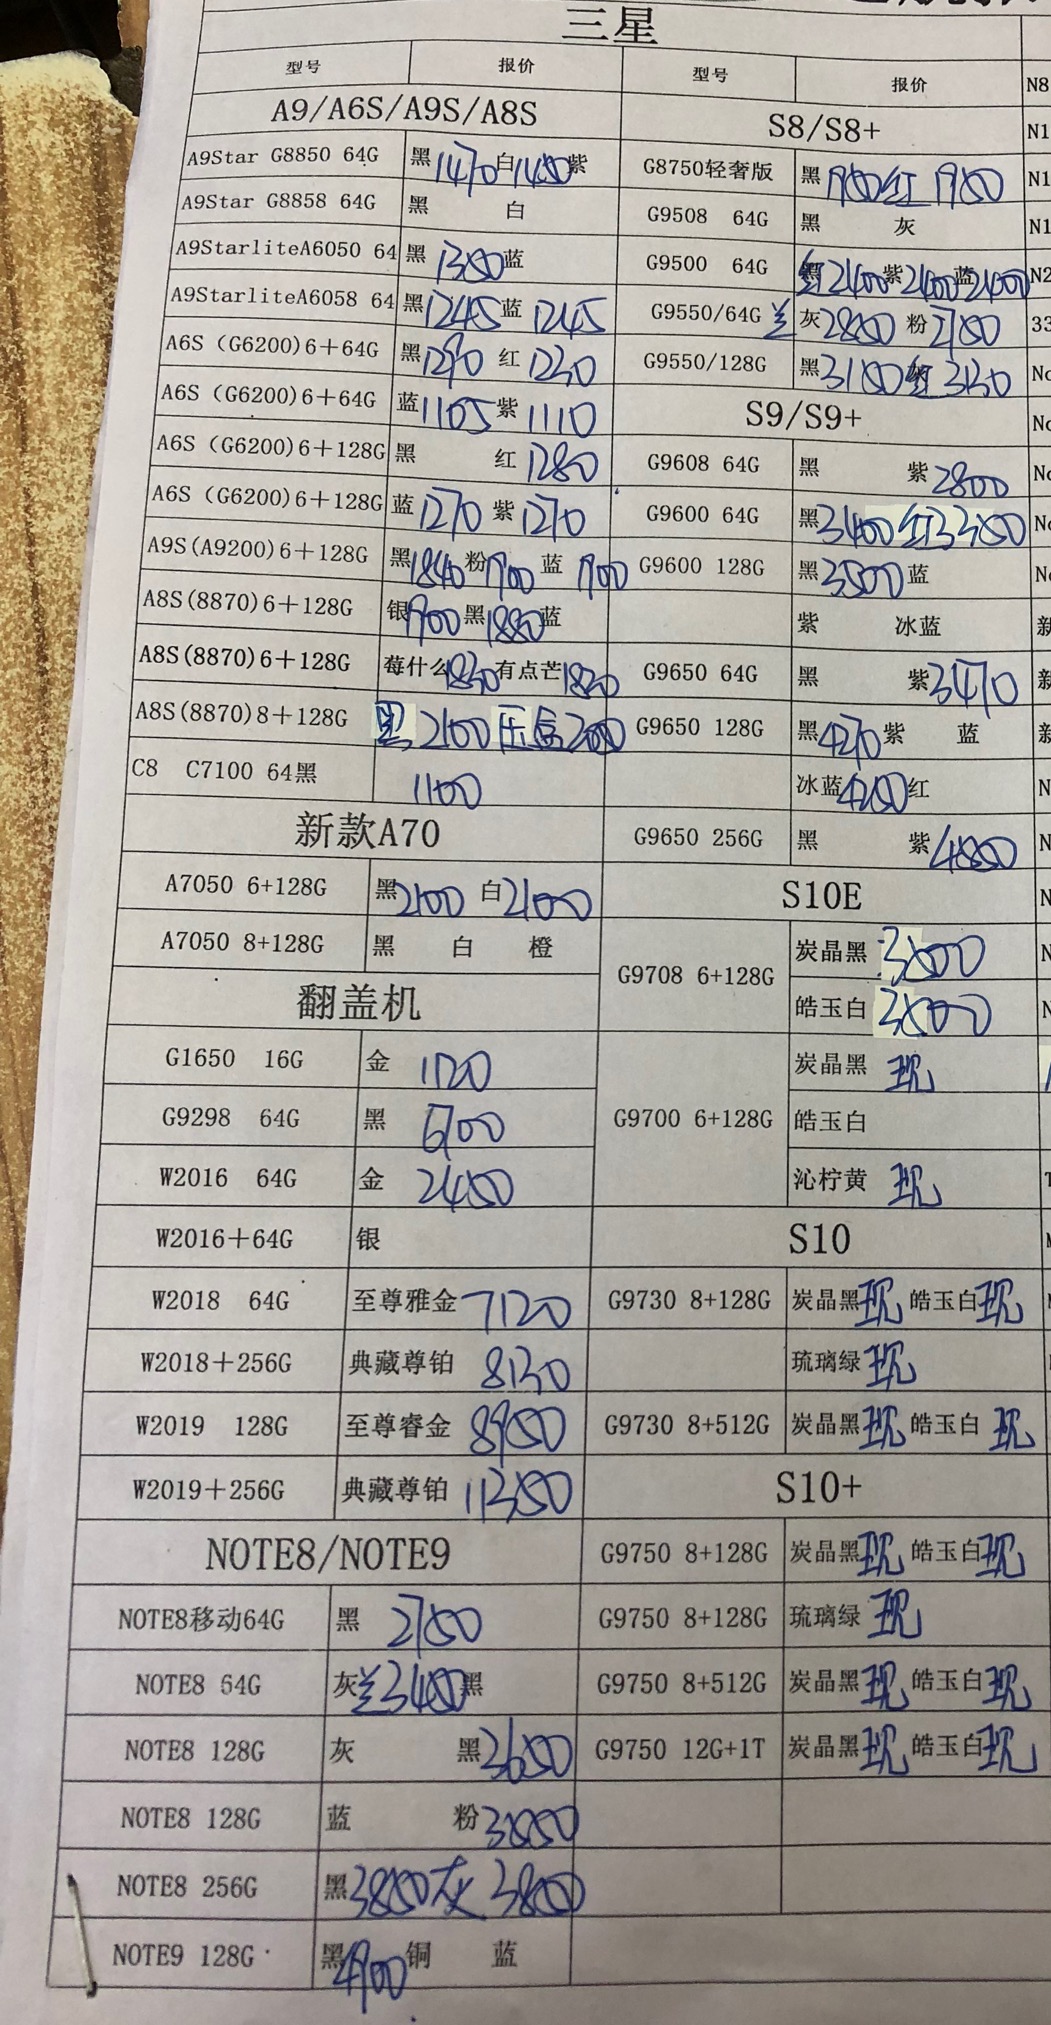 三星
型号 报价 型号 报价
A9/A6S/A9S/A8S S8/S8+
A9Star G8850 64G 黑1470白1450紫 G8750轻奢版 黑1950红1950
A9Star G8858 64G 黑 白 G9508 64G 黑 灰
A9StarliteA6050 64 黑1350蓝 G9500 64G 红2400紫2400蓝2400
A9StarliteA6058 64 黑1245蓝1245 G9550/64G 兰 灰2850粉2750
A6S (G6200)6+64G 黑1290红1230 G9550/128G 黑3180红3130
A6S (G6200)6+64G 蓝1105紫1110 S9/S9+
A6S (G6200)6+128G 黑 红1280 G9608 64G 黑 紫2800
A6S (G6200)6+128G 蓝1270紫1270 G9600 64G 黑3400红3350
A9S(A9200)6+128G 黑1840粉1700蓝1700 G9600 128G 黑3500蓝
A8S(8870)6+128G 银1900黑1880蓝 紫 冰蓝
A8S(8870)6+128G 莓什么1830有点芒1830 G9650 64G 黑 紫3470
A8S(8870)8+128G 黑2100压盒 G9650 128G 黑4270紫 蓝
C8 C7100 64黑 1100 冰蓝4200红
新款A70 G9650 256G 黑 紫4850
A7050 6+128G 黑2100白2100 S10E
A7050 8+128G 黑 白 橙 G9708 6+128G 炭晶黑3800
皓玉白3800
翻盖机
G1650 16G 金 1120 G9700 6+128G 炭晶黑 现
G9298 64G 黑 6700 皓玉白
W2016 64G 金 2450 沁柠黄 现
W2016+64G 银 S10
W2018 64G 至尊雅金7120 G9730 8+128G 炭晶黑现 皓玉白现
W2018+256G 典藏尊铂 8130 琉璃绿现
W2019 128G 至尊睿金 8950 G9730 8+512G 炭晶黑现 皓玉白 现
W2019+256G 典藏尊铂 11350 S10+
NOTE8/NOTE9 G9750 8+128G 炭晶黑现 皓玉白现
NOTE8移动64G 黑 2750 G9750 8+128G 琉璃绿 现
NOTE8 64G 灰兰3480黑 G9750 8+512G 炭晶黑现 皓玉白现
NOTE8 128G 灰 黑3650 G9750 12G+1T 炭晶黑现 皓玉白现
NOTE8 128G 蓝 粉3550
NOTE8 256G 黑3850灰 3800
NOTE9 128G 黑4900铜 蓝